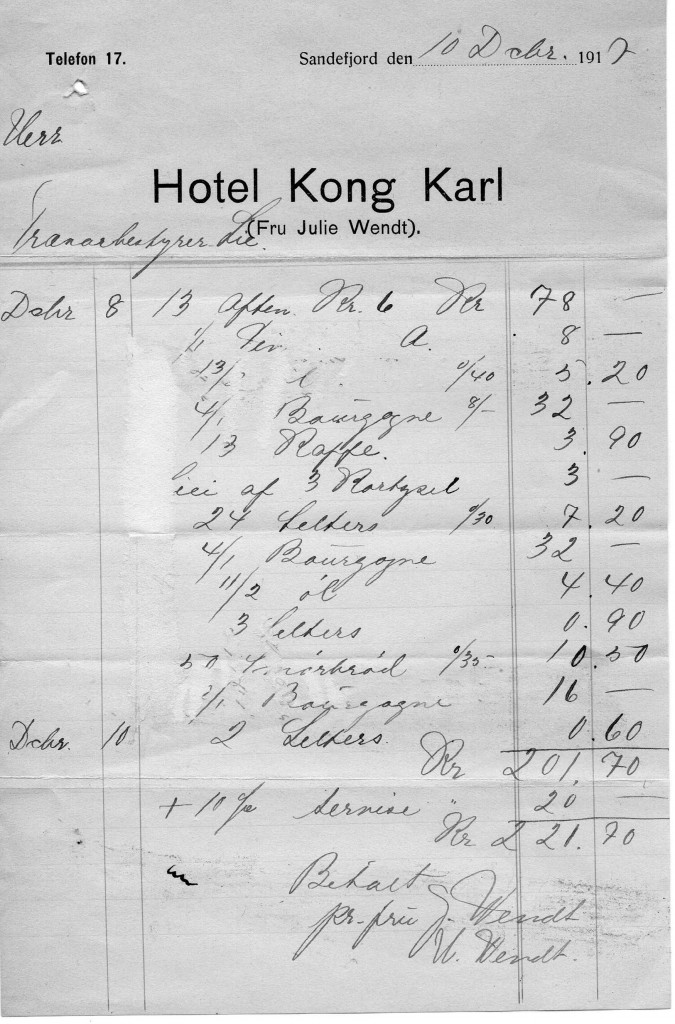 Telefon 17.
Sandefjord den 10 Dcbr. 1917
Herr
Hotel Kong Karl
(Fru Julie Wendt).
Lie.
Dcbr 8 13 Aften Kr. 6 Kr 78 —
1/1 A. 8 —
13/2 0/40 5.20
4/1 Bourgogne 8/- 32 —
13 Kaffe. 3.90
leie af 3 3 —
24 Selters 0/30 7.20
4/1 Bourgogne 32 —
11/2 öl 4.40
3 Selters 0.90
smörbröd 0/35 10.50
2/1 Bourgogne 16 —
Dcbr. 10 2 Selters. 0.60
Kr 201.70
+ 10 % Servise " 20 —
Kr 221.70
Betalt
pr. fru J. Wendt
U. Wendt.